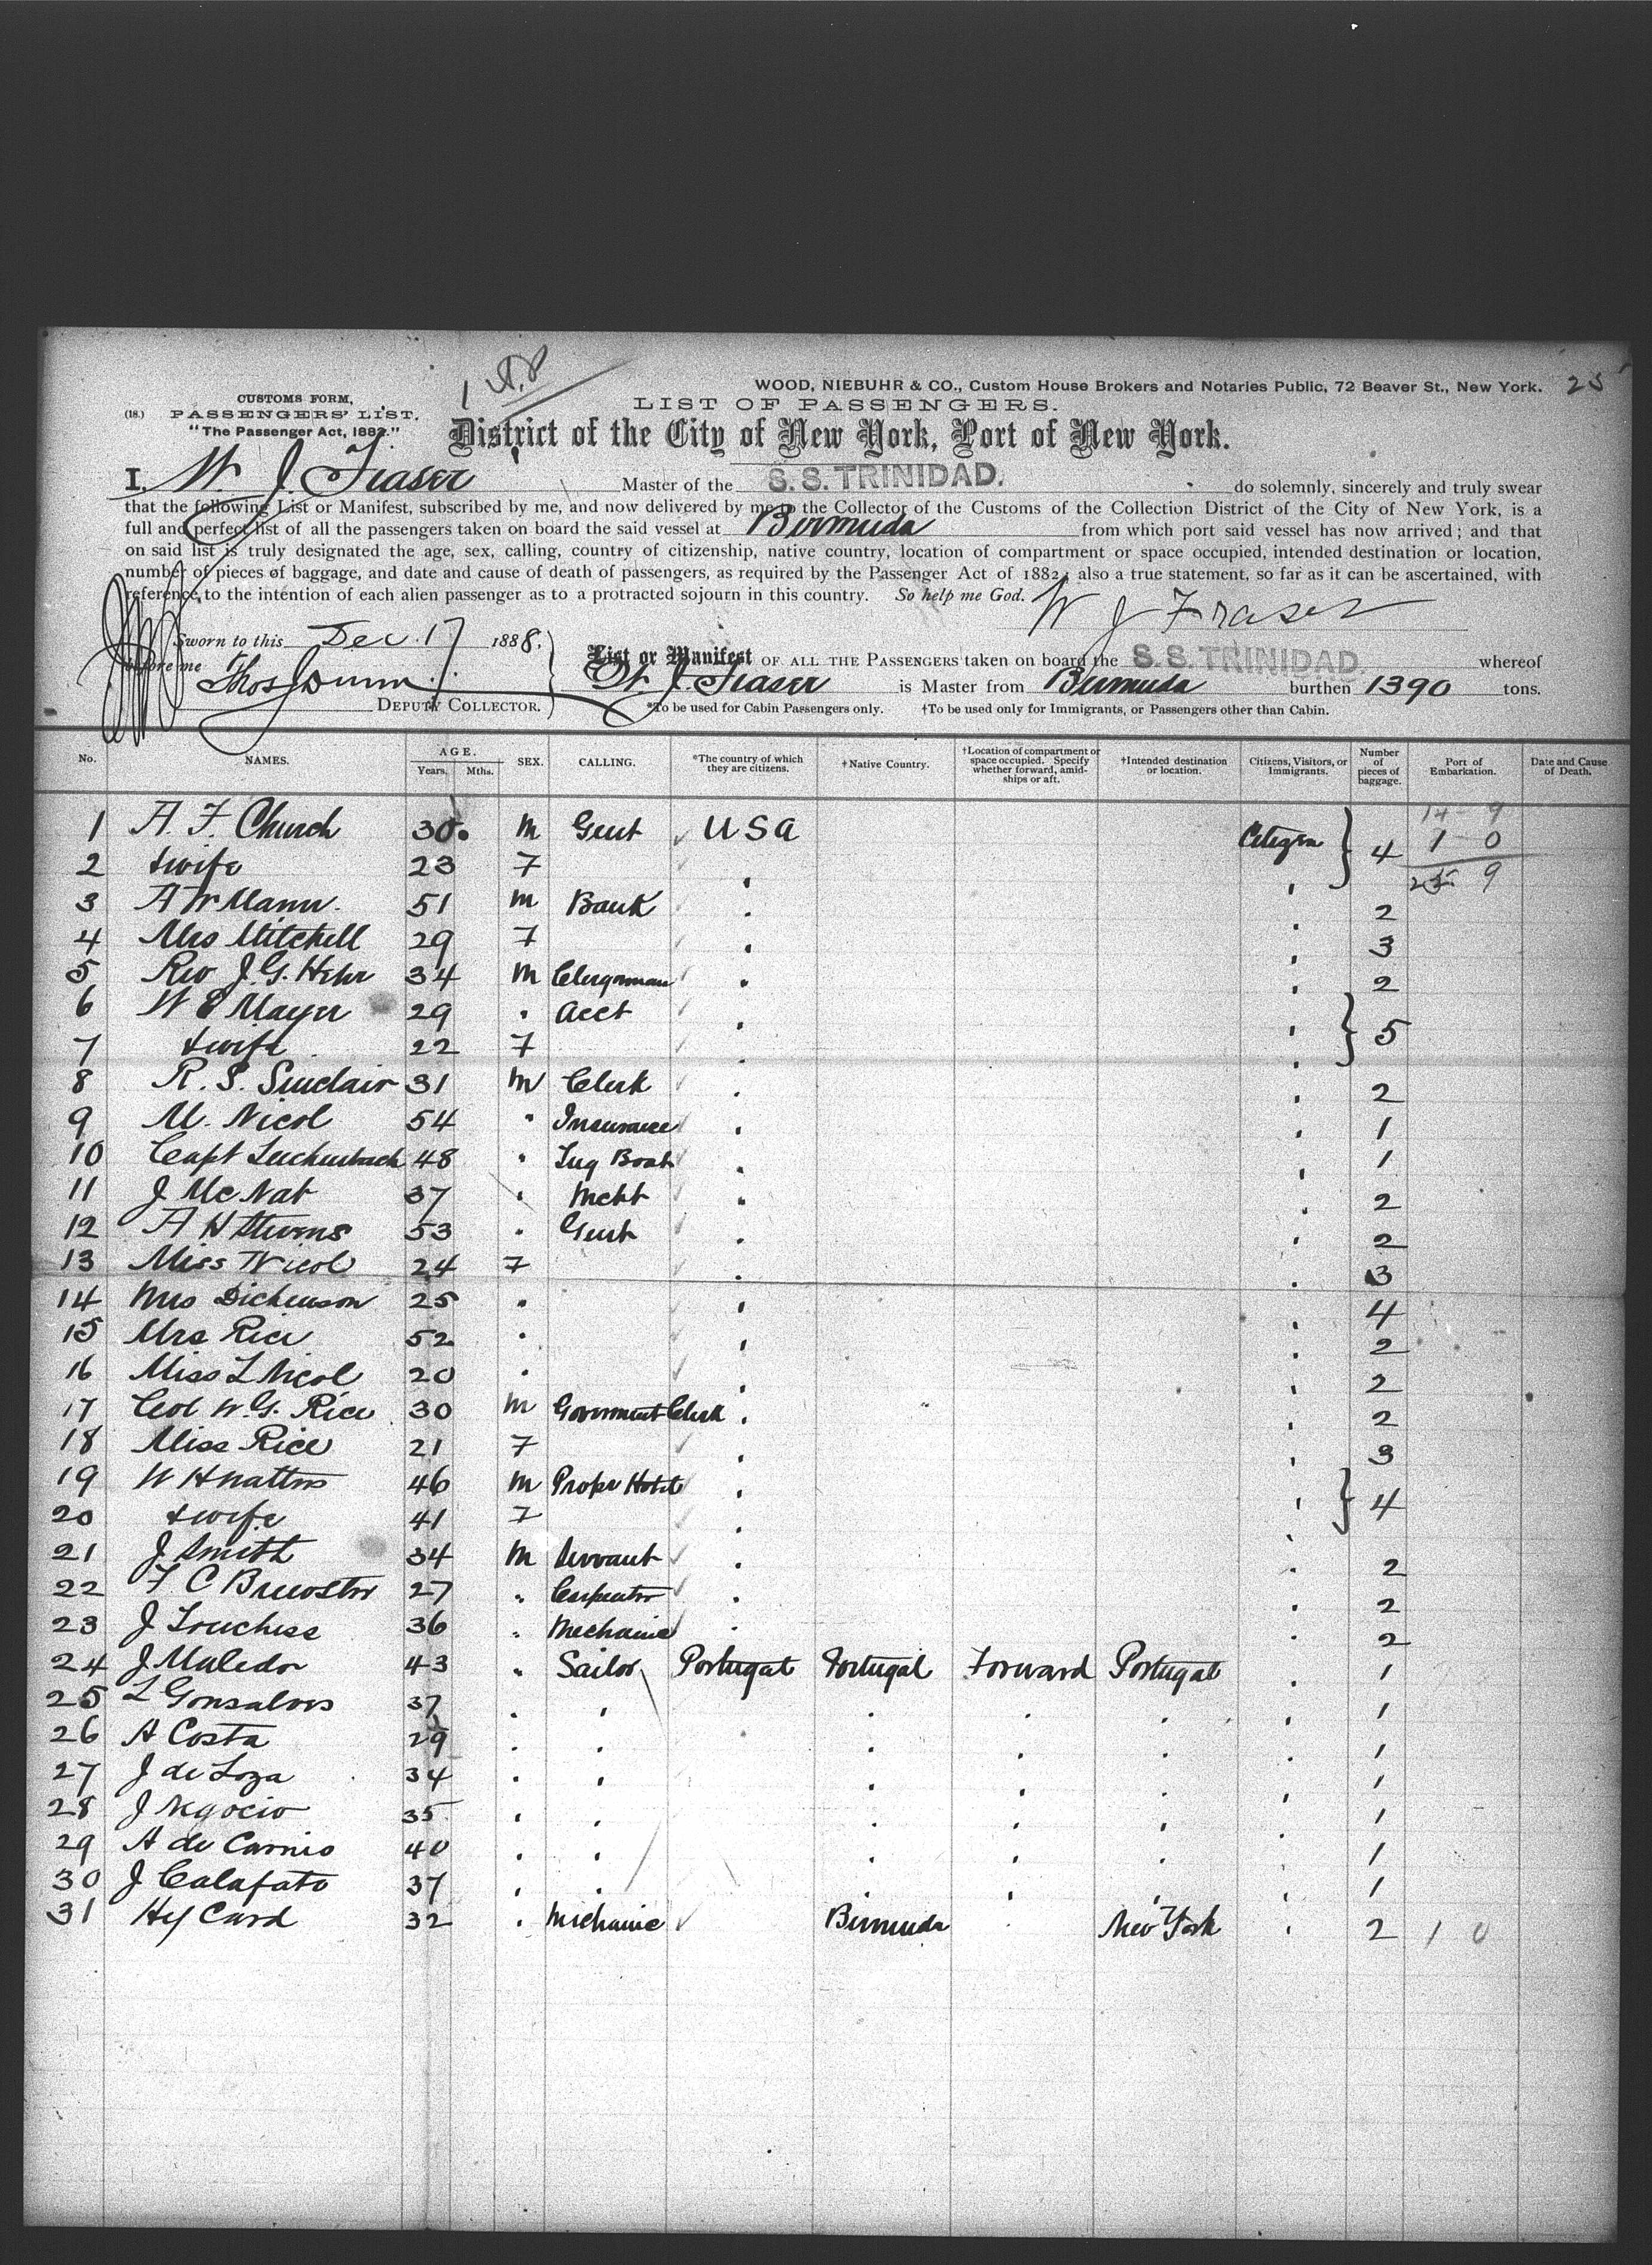 1
WOOD, NIEBUHR & CO., Custom House Brokers and Notaries Public, 72 Beaver St., New York. 25
CUSTOMS FORM,
(18.) PASSENGERS' LIST.
"The Passenger Act, 1882."
LIST OF PASSENGERS.
District of the City of New York, Port of New York.
I, W. J. Fraser Master of the S. S. TRINIDAD. do solemnly, sincerely and truly swear
that the following List or Manifest, subscribed by me, and now delivered by me to the Collector of the Customs of the Collection District of the City of New York, is a
full and perfect list of all the passengers taken on board the said vessel at Bermuda from which port said vessel has now arrived; and that
on said list is truly designated the age, sex, calling, country of citizenship, native country, location of compartment or space occupied, intended destination or location,
number of pieces of baggage, and date and cause of death of passengers, as required by the Passenger Act of 1882; also a true statement, so far as it can be ascertained, with
reference to the intention of each alien passenger as to a protracted sojourn in this country. So help me God.
W J Fraser
Sworn to this Dec. 17 1888.
before me Thos Dunn
DEPUTY COLLECTOR.
List or Manifest OF ALL THE PASSENGERS taken on board the S. S. TRINIDAD. whereof
W. J. Fraser is Master from Bermuda burthen 1390 tons.
*To be used for Cabin Passengers only. †To be used only for Immigrants, or Passengers other than Cabin.
No. NAMES. AGE. Years. Mths. SEX. CALLING. *The country of which they are citizens. †Native Country. †Location of compartment or space occupied. Specify whether forward, amidships or aft. †Intended destination or location. Citizens, Visitors, or Immigrants. Number of pieces of baggage. Port of Embarkation. Date and Cause of Death.
14 9
1 A. F. Church 30 M Gent USA Citizen 4 1 0
2 & wife 23 F " " 9
3 A W Mann 51 M Bank " " 2
4 Mrs Mitchell 29 F " " 3
5 Rev J. G. Hehr 34 M Clergyman " " 2
6 W E Mayer 29 " Acct " " 5
7 & wife 22 F " "
8 R. S. Sinclair 31 M Clerk " " 2
9 M. Nicol 54 " Insurance " " 1
10 Capt Luckenbach 48 " Tug Boat " " 1
11 J McNab 37 " Mcht " " 2
12 A H Stevens 53 " Gent " " 2
13 Miss Nicol 24 F " " 3
14 Mrs Dickenson 25 " " " 4
15 Mrs Rice 52 " " " 2
16 Miss L Nicol 20 " " " 2
17 Col W. G. Rice 30 M Government Clerk " " 2
18 Miss Rice 21 F " " 3
19 W H 46 M Propr Hotel " " 4
20 & wife 41 F " "
21 J Smith 34 M Servant " " 2
22 F C Brewster 27 " Carpenter " " 2
23 J 36 " Mechanic " " 2
24 J 43 " Sailor Portugal Portugal Forward Portugal " 1
25 L Gonsalves 37 " " " " " " 1
26 A Costa 29 " " " " " " 1
27 J de Loza 34 " " " " " " 1
28 J Negocio 35 " " " " " " 1
29 A de 40 " " " " " " 1
30 J Calafato 37 " " " " " " 1
31 Hy Card 32 " Mechanic Bermuda New York " 2 1 0